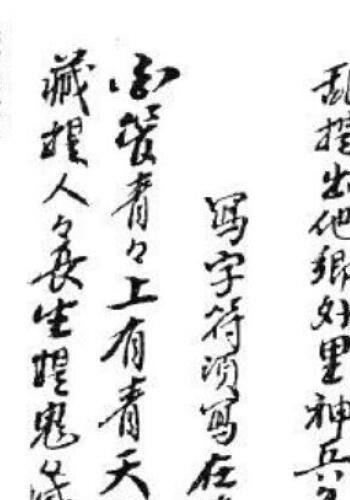 乱提出他鄉外里神兵
寫字符須寫在
青々上有青天
藏提人々長生提鬼々滅